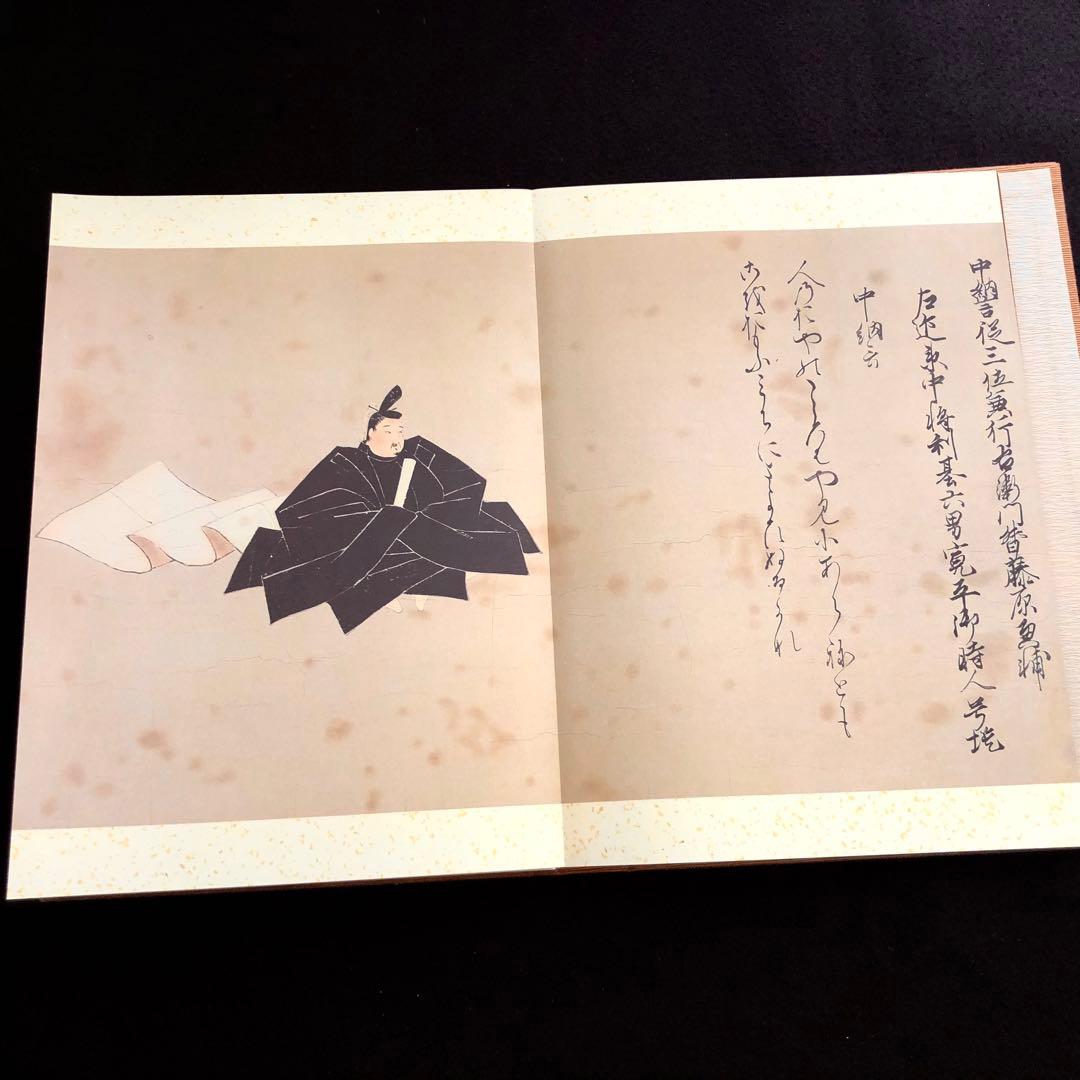 中納言従三位兼行右衛門督藤原兼輔
左近衛中将利基六男寛平御時人号堤
中納言
人のおやのこゝろはやみにあらねとも
こをおもふみちにまよひぬるかな